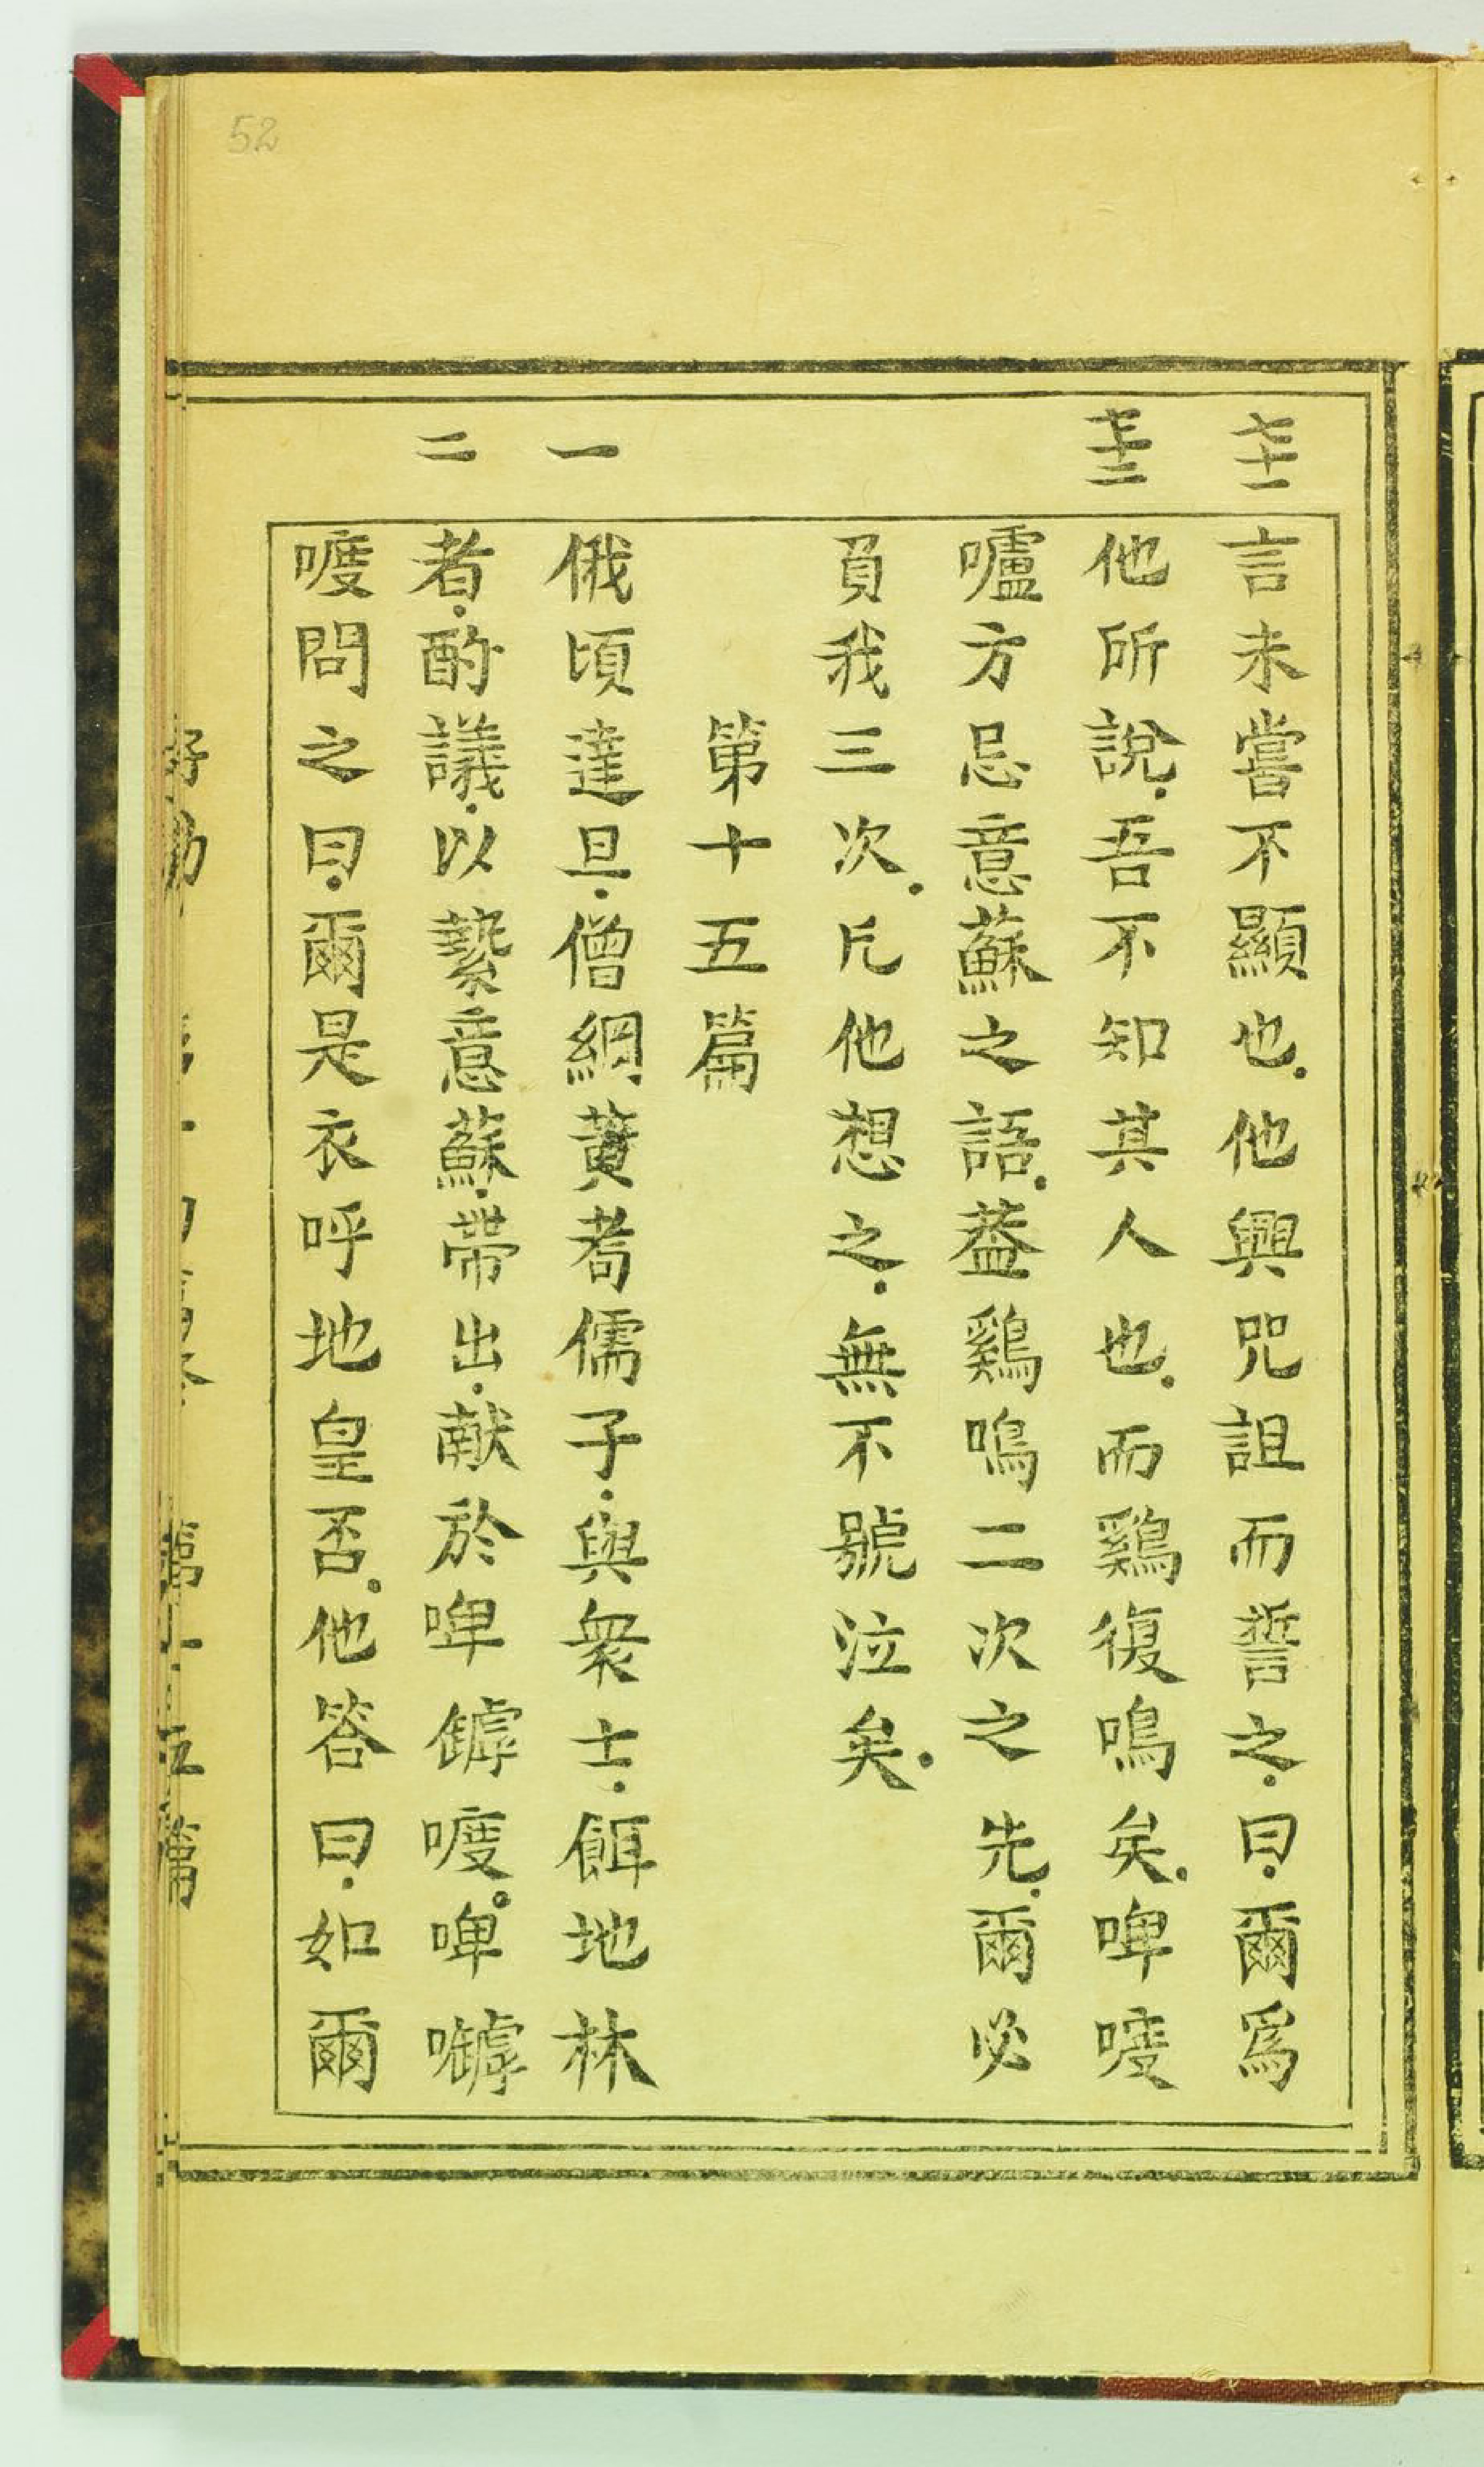 52
七十一
言未嘗不顯也.他興咒詛而誓之.曰.爾爲
七十二
他所說.吾不知其人也.而鷄復鳴矣.啤嘜
嚧方忌意蘇之語.葢鷄鳴二次之先.爾必
負我三次.凡他想之.無不號泣矣.
第十五篇
一
俄頃達旦.僧綱黃耈儒子.與衆士.餌地林
二
者.酌議.以縶意蘇.帶出.献於啤罅嘜.啤嚹
嘜問之曰.爾是衣呼地皇否.他答曰.如爾